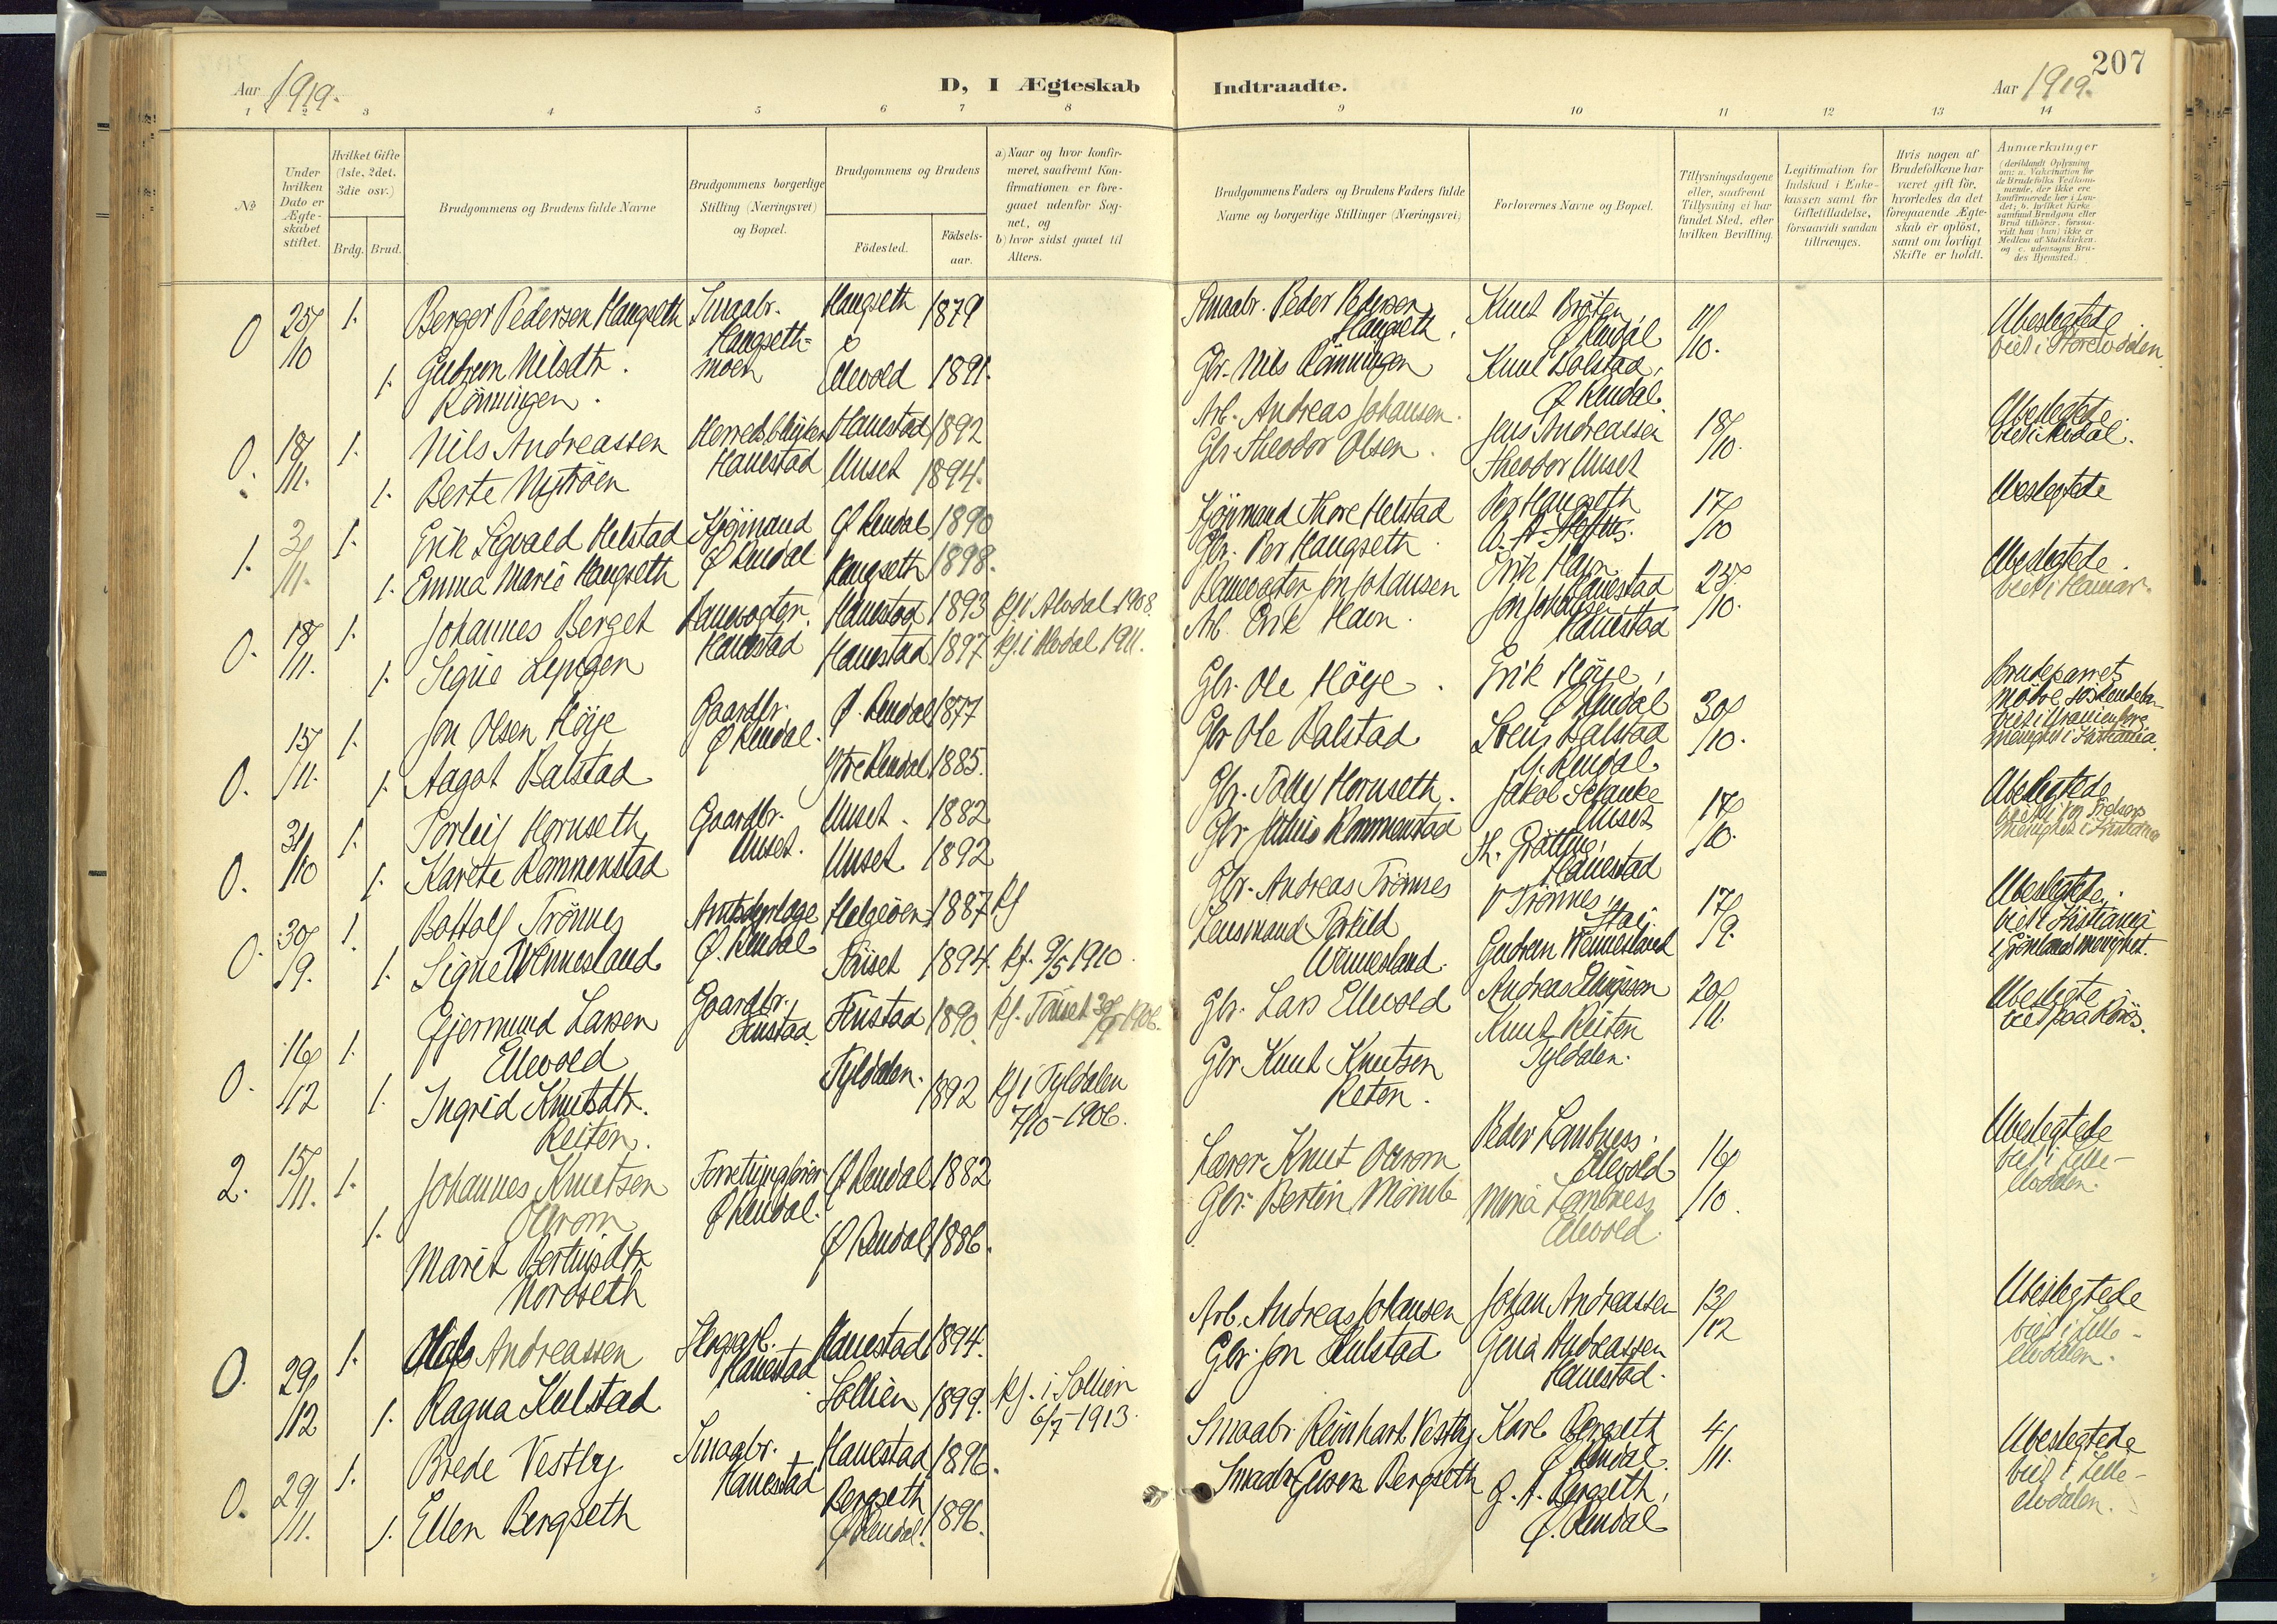 207
Aar 1919.
D, I Ægteskab Indtraadte.
Aar 1919.
1 2 3 4 5 6 7 8 9 10 11 12 13 14
No.
Under hvilken Dato er Ægte-skabet stiftet.
Hvilket Gifte (1ste, 2det, 3die osv.)
Brdg. Brud.
Brudgommens og Brudens fulde Navne
Brudgommens borgerlige Stilling (Næringsvei) og Bopæl.
Brudgommens og Brudens
Fødested.
Fødsels-aar.
a) Naar og hvor konfir-meret, saafremt Kon-firmationen er fore-gaaet udenfor Sog-net, og
b) hvor sidst gaaet til Alters.
Brudgommens Faders og Brudens Faders fulde Navne og borgerlige Stillinger (Næringsvei)
Forlovernes Navne og Bopæl.
Tillysningsdagene eller, saafremt Tillysning ei har fundet Sted, efter hvilken Bevilling.
Legitimation for Indskud i Enke-kassen samt for Giftetilladelse, forsaavidt saadan tiltrænges.
Hvis nogen af Brudefolkene har været gift før, hvorledes da det foregaaende Ægte-skab er opløst, samt om lovligt Skifte er holdt.
Anmærkninger (deriblandt Oplysning om: a. Vaksination for de Brudefolks Vedkom-mende, der ikke ere konfirmerede her i Lan-det; b. hvilket Kirke-samfund Brudgom eller Brud tilhører, forsaa-vidt han (hun) ikke er Medlem af Statskirken, og c. udensogns Bru-des Hjemsted.)
0 25/10 1. Berger Pedersen Haugseth Smaabr. Haugseth-moen Haugseth 1879 Smaabr. Peder Pedersen Haugseth. Knut Bråten Ø Rendal 11/10. Ubeslegtede
1. Gudrun Nilsdtr. Rönningen. Ellevold 1891. Gbr. Nils Rönningen Knut Bolstad, Ø Rendal.
0. 18/11. 1. Nils Andreassen Hanestad Hanestad 1892 Arb. Andreas Johansen. Jens Andreassen 18/10. Ubeslegtede.
1. Berte Nytröen Unset 1894. Gbr. Theodor Olsen. Theodor Unset
1. 3/11. 1. Erik Sigvald Helstad Kjöpmand Ø Rendal Ø Rendal 1890 Kjöpmand Thore Helstad Per Haugseth 17/10 Ubeslegtede
1. Emma Marie Haugseth Haugseth 1898. Gbr. Per Haugseth.
0. 18/11. 1. Johannes Berget Banevogter. Hanestad Hanestad 1893 kf. i Alvdal 1908. Banevogter Jon Johansen Erik Havn Hanestad 25/10. Ubeslegtede. viet i Hamar.
1. Signe Hanestad 1897 kf. i Alvdal 1911. Arb. Erik Havn. Jon Johansen Hanestad
0. 15/11. 1. Jon Olsen Höye Gaardbr. Ø Rendal. Ø. Rendal 1877 Gbr. Ole Höye. Erik Höye, Ø Rendal 30/10. Brudeparret
1. Aagot Balstad Ytre Rendal 1885. Gbr Ole Balstad Svein Balstad Y. Rendal.
0. 31/10 1. Torleif Hornseth Gaardbr. Unset. Unset. 1882 Gbr. Tollef Hornseth. Jakob Schanke Unset 17/10. Ubeslegtede
1. Karete Rommenstad Unset. 1892 Gbr Julius Rommenstad Hanestad
0. 30/9. 1. Bottolf Trönnes Ø. Rendal Helgeöen 1887 kf Gbr. Andreas Trönnes Trönnes, Stai 17/9. Ubeslegtede. viet i Kristiania i Grönlands menighet.
1. Signe Wennesland Tönset 1894. kf. 9/5 1910. Lensmand Torkild Wennesland. Gudrun Wennesland
0. 16/12 1. Gjermund Larsen Ellevold Gaardbr. Finstad. Finstad 1890. kf. Tönset 30/9 1906. Gbr. Lars Ellevold Andreas Ellingsson 20/11. Ubeslegtede. viet paa Röros.
1. Ingrid Knutsdtr. Reiten. Tyldalen. 1892 kf i Tyldalen 7/10-1906. Gbr Knut Knutsen Reten. Knut Reiten Tyldalen.
2. 15/11. 1. Johannes Knutsen Ø Rendal. Ø Rendal 1882 Lærer Knut Peder Lombnæss. Ellevold 16/10. Ubeslegtede viet i Lille-elvdalen.
1. Marit Bertinsdtr. Nordseth Ø Rendal 1886. Gbr. Bertin Lombnæss Ellevold.
0. 29/12 1. Olaf Andreassen Hanestad Hanestad 1894. Arb. Andreas Johansen Johan Andreassen 13/12 Ubeslegtede viet i Lille-elvdalen.
1. Ragna Kulstad Sollien 1899. kf. i Sollien 6/7-1913. Gbr. Jon Kulstad Andreassen Hanestad.
0. 29/11. 1. Brede Vestby Smaabr. Hanestad Hanestad 1896. Smaabr. Reinhart Vestby Karl Bergseth Ø Rendal. 4/11. Ubeslegtede viet i Lille-elvdalen.
1. Ellen Bergseth Bergseth Ø Rendal. 1896. Smaabr. Bergseth Bergseth, Ø. Rendal